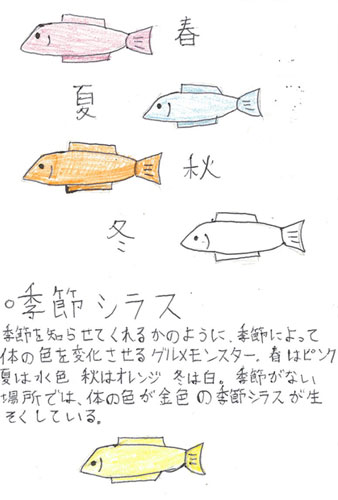 春
夏
秋
冬
○季節シラス
季節を知らせてくれるかのように、季節によって
体の色を変化させるグルメモンスター。春はピンク
夏は水色 秋はオレンジ 冬は白。季節がない
場所では、体の色が金色の季節シラスが生
そくしている。